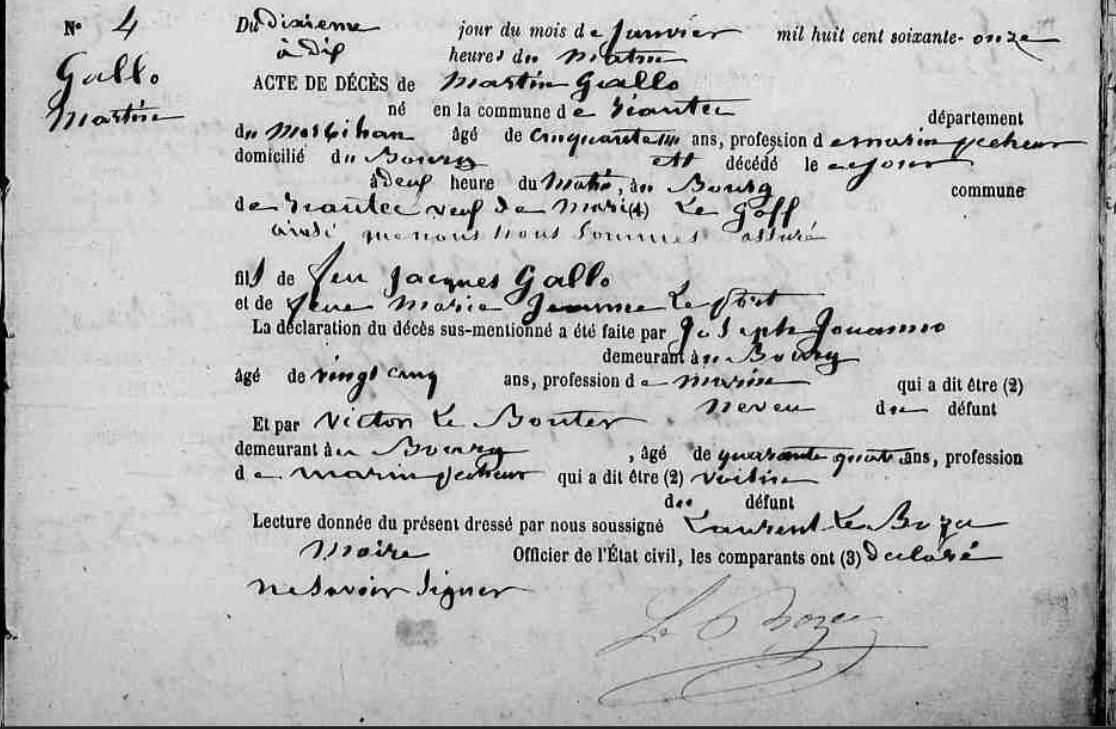 N° 4
Gallo
Martin
Du dixieme jour du mois de Janvier mil huit cent soixante-onze
à dix heures du matin
ACTE DE DÉCÈS de Martin Gallo
né en la commune de riantec département
du Morbihan âgé de cinquante un ans, profession de marin pecheur
domicilié du Bourg est décédé le ce jour
à deux heure du matin, au Bourg commune
de riantec veuf de Marie (4) Le Goff
ainsi que nous nous sommes assuré
fils de feu Jacques Gallo
et de feue Marie Jeanne Le
La déclaration du décès sus-mentionné a été faite par Joseph Jouanno
demeurant au Bourg
âgé de vingt cinq ans, profession de marin qui a dit être (2)
neveu du défunt
Et par Victor Le Bouter
demeurant au Bourg, âgé de quarante quatre ans, profession
de marin pecheur qui a dit être (2) voisin
du défunt
Lecture donnée du présent dressé par nous soussigné Laurent Le Bozec
Maire Officier de l'État civil, les comparants ont (3) declaré
ne Savoir Signer
Le Bozec